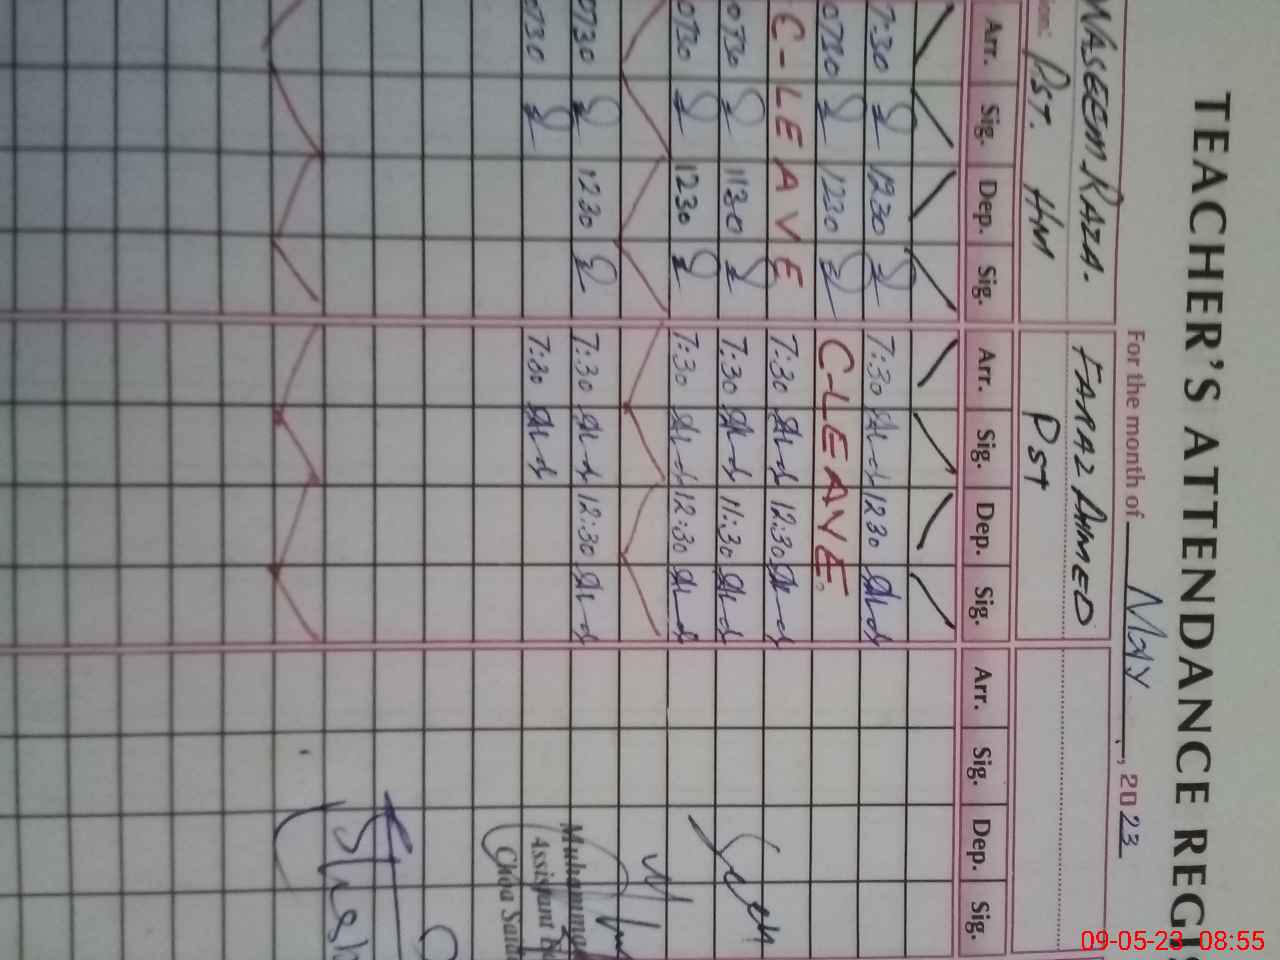 TEACHER'S ATTENDANCE REGIS
For the month of May, 2023
WASEEM RAZA. FARAZ AHMED
ion: PST. HM PST
Arr. Sig. Dep. Sig. Arr. Sig. Dep. Sig. Arr. Sig. Dep. Sig.
7:30 1230 7:30 1230
0730 1230 C-LEAVE
C-LEAVE 7:30 12:30
0730 1130 7:30 11:30
0730 1230 7:30 12:30
0730 1230 7:30 12:30
0730 7:30
Muhammad
Assistant
Choa Saida
09-05-23 08:55